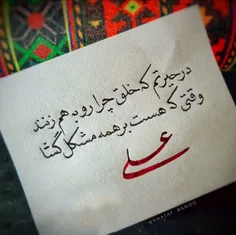 در حیرتم که خلق چرا رو به هم زنند
وقتی که هست بر همه مشکل گشا
علی